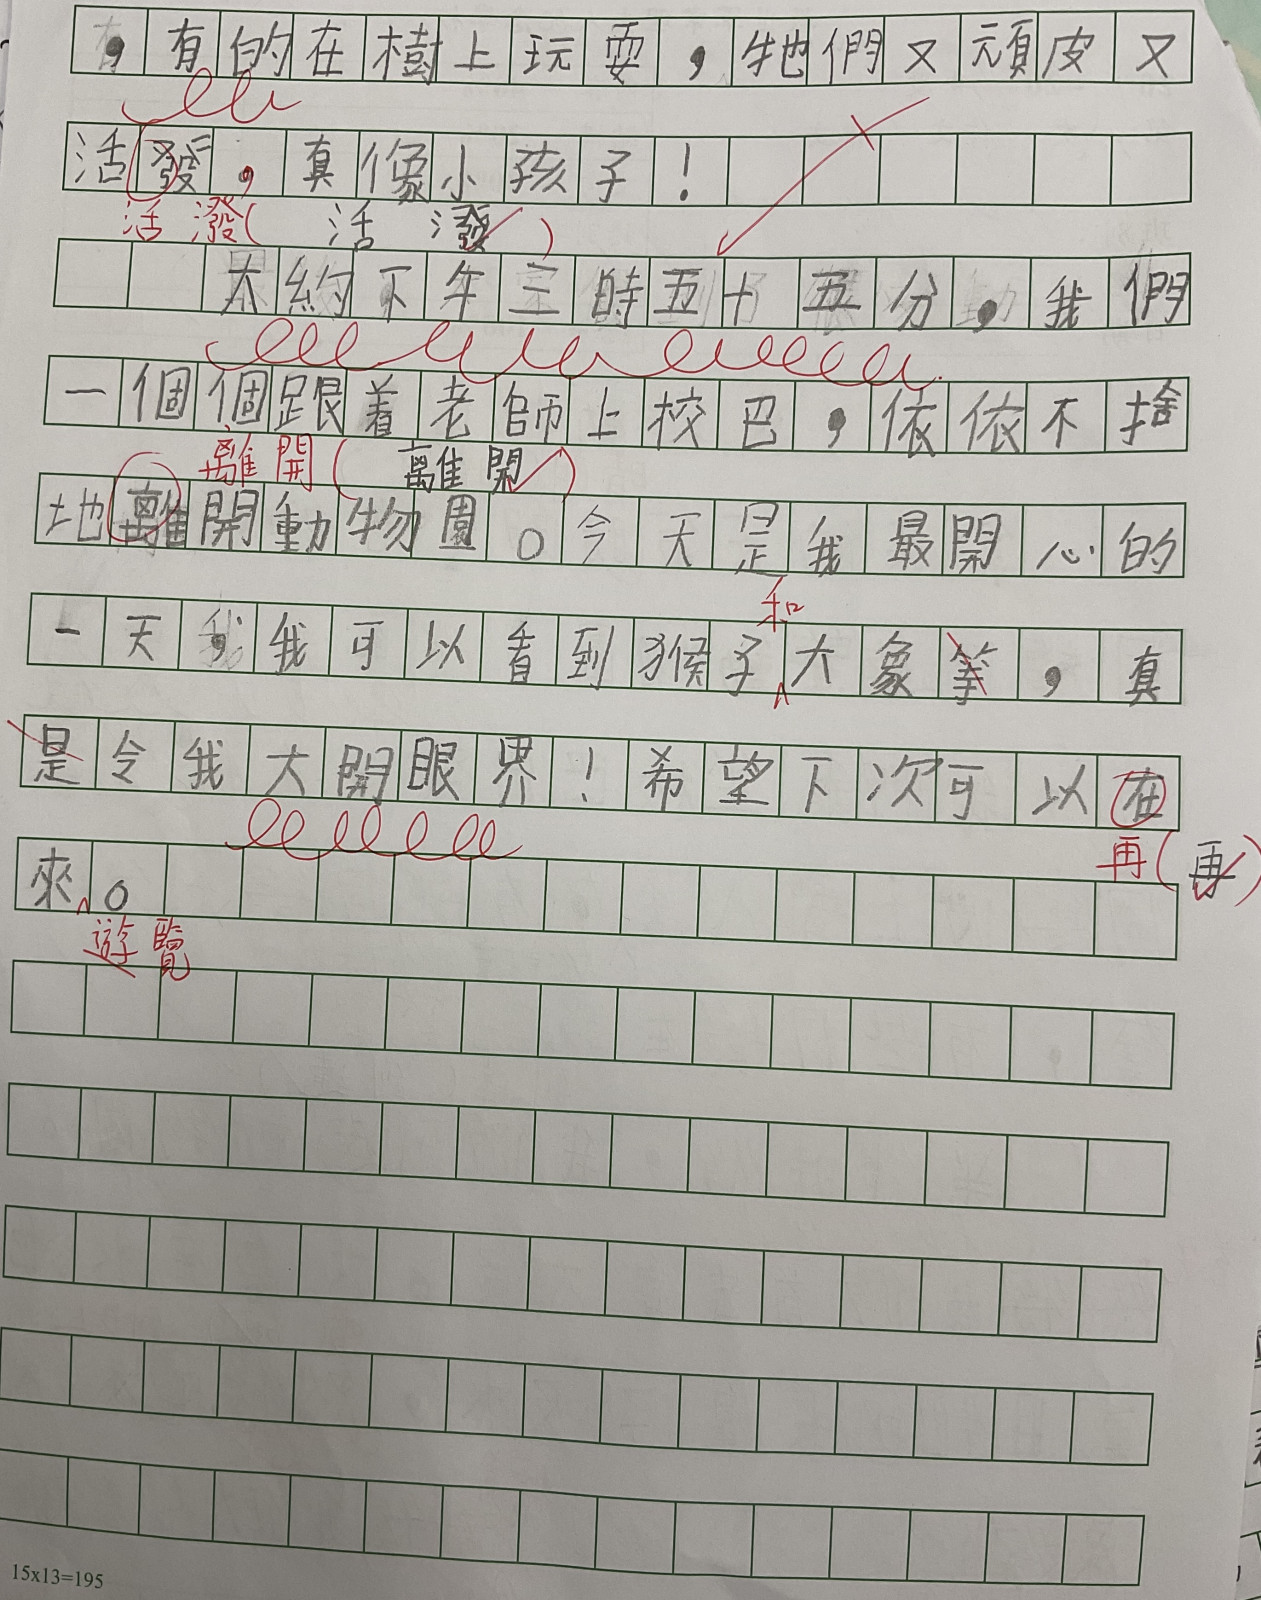 ，有的在樹上玩耍，牠們又頑皮又
活發，真像小孩子！
活潑(活潑)
大約下午三時五十五分，我們
一個個跟着老師上校巴，依依不捨
離開(離開)
地離開動物園。今天是我最開心的
和
一天，我可以看到猴子大象等，真
是令我大開眼界！希望下次可以在
再(再)
來。
遊覽
15x13=195